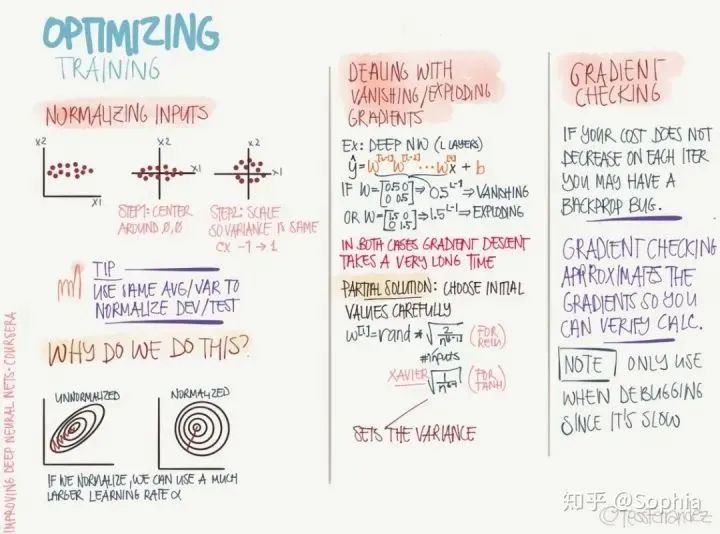 OPTIMIZING
TRAINING
NORMALIZING INPUTS
X2
X1
X2
X1
X2
X1
STEP1: CENTER
AROUND 0,0
STEP2: SCALE
SO VARIANCE IS SAME
EX -1 → 1
TIP
USE SAME AVG/VAR TO
NORMALIZE DEV/TEST
WHY DO WE DO THIS?
UNNORMALIZED
NORMALIZED
IF WE NORMALIZE, WE CAN USE A MUCH
LARGER LEARNING RATE α
IMPROVING DEEP NEURAL NETS · COURSERA
DEALING WITH
VANISHING/EXPLODING
GRADIENTS
EX: DEEP NW (L LAYERS)
ŷ = W[L-1] W[L-2] ... W[1] X + b
IF W=[0.5 0 0 0.5] ⇒ 0.5^L-1 ⇒ VANISHING
OR W=[1.5 0 0 1.5] ⇒ 1.5^L-1 ⇒ EXPLODING
IN BOTH CASES GRADIENT DESCENT
TAKES A VERY LONG TIME
PARTIAL SOLUTION: CHOOSE INITIAL
VALUES CAREFULLY
W[l] = rand * √2/n[l-1] (FOR RELU)
#INPUTS
XAVIER √1/n[l-1] (FOR TANH)
SETS THE VARIANCE
GRADIENT
CHECKING
IF YOUR COST DOES NOT
DECREASE ON EACH ITER
YOU MAY HAVE A
BACKPROP BUG.
GRADIENT CHECKING
APPROXIMATES THE
GRADIENTS SO YOU
CAN VERIFY CALC.
NOTE ONLY USE
WHEN DEBUGGING
SINCE IT'S SLOW
知乎 @Sophia
@TessFerrandez